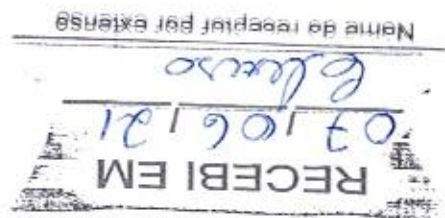 RECEBI EM
07 / 06 / 21
Nome do receptor por extenso